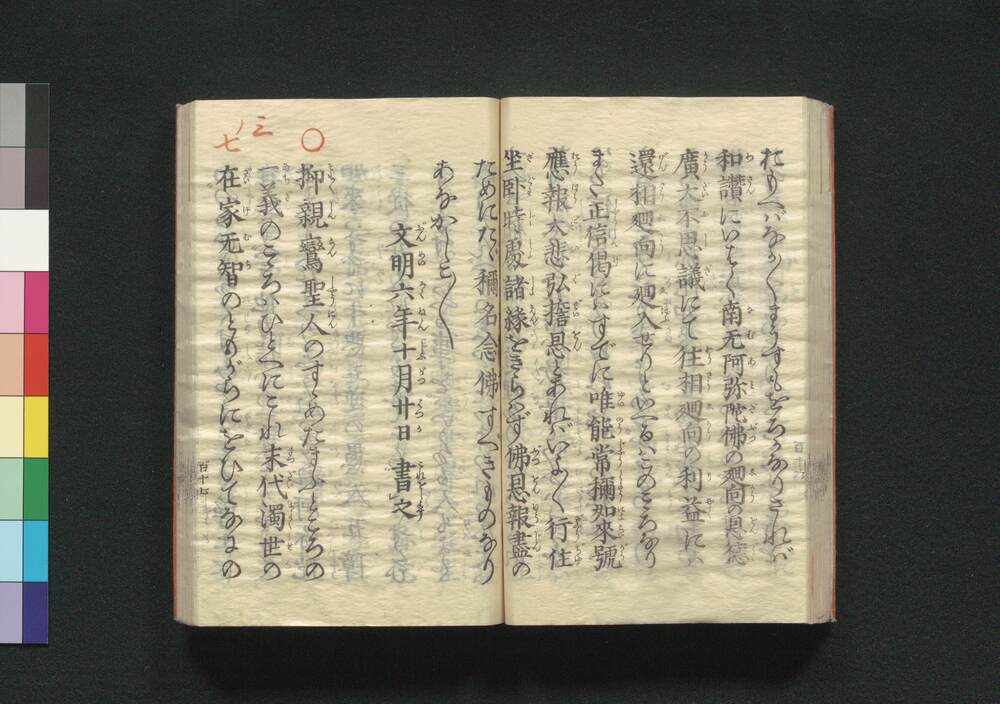 おもへばなか〳〵まうすもをろかなりされば
和讃にいはく南无阿弥陀佛の廻向の恩德
廣大不思議にて往相廻向の利益には
還相廻向に廻入せりといへるはこのこころなり
また正信偈にはすでに唯能常稱如來號
應報大悲弘誓恩とあればいよ〳〵行住
坐臥時處諸緣をきらはず佛恩報盡の
ためにたゞ稱名念佛すべきものなり
あなかしこ〳〵
文明六年十月廿日書之
三ノ七
〇
抑親鸞聖人のすゝめたまふところの
一義のこゝろはひとへにこれ末代濁世の
在家无智のともがらにをひてなにの
百十七